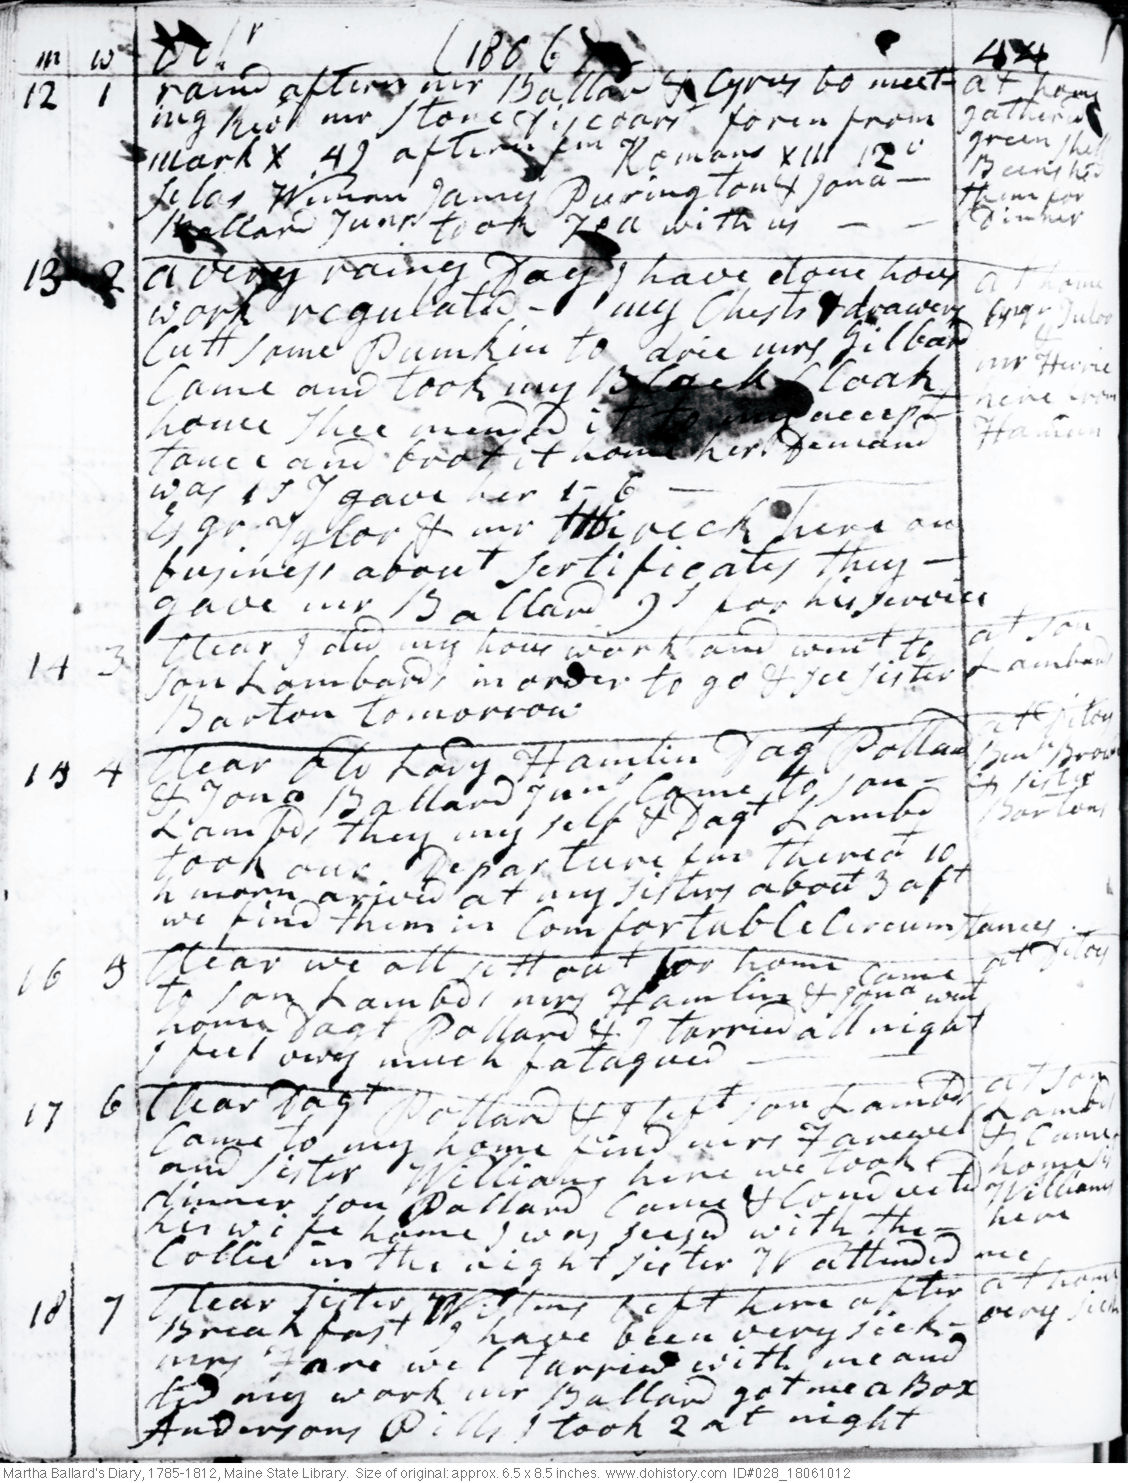 m w Octr (1806) 44
12 1 raind aftern mr Ballard & Cyrus to meet- at home
ing Revd mr Stone discoarst foren from gathered
mark X 49 aftern fm Romans XIII 12 green shell
Silas Wiman James Purington & Jona - Beens had
Ballard Junr took Tea with us - - them for
Dinner
13 2 a very rainy Day I have done hous at home
work regulated - my Chests & drawers Esqr
Cutt some Pumkin to drie mrs Gilbard &
Came and took my Black Cloak mr
home Shee mended it to my accept- here from
tance and brot it home her Demand
was 1 S I gave her 1-6 -
Esqr Tylor & mr here on
business about Sertificates they -
gave mr Ballard 9s for his service
14 3 Clear I did my hous work and went to at son
son Lambards in order to go & see sister Lambards
Barton tomorrow
15 4 Clear Old Lady Hamlin Dagt Pollard at Ditos
& Jona Ballard Junr Came to son - Brown
Lambds they my self & Dagt Lambd & sister
took our Departure from there at 10 Bartons
h morn arived at my sisters about 3 aft
we find them in Comfortable Circumstances
16 5 Clear we all sett out for home Came at Ditos
to son Lambds mrs Hamlin & Jona went
home Dagt Pollard & I tarried all night
I feel very much fatagued - -
17 6 Clear Dagt Pollard & I left son Lambds at son
Came to my home find mrs Farewel Lambds
and sister Williams here we took & Came
dinner son Pollard Came & Conducted home
his wife home I was seesd with the - Williams
Collic in the night sister W attended me here
18 7 Clear sister Williams left here after at home
Breakfast I have been very sick - very sick
mrs Farewel tarried with me and
did my work mr Ballard got me a Box
Andersons Pills I took 2 at night
Martha Ballard's Diary, 1785-1812, Maine State Library. Size of original: approx. 6.5 x 8.5 inches. www.dohistory.com ID#028_18061012